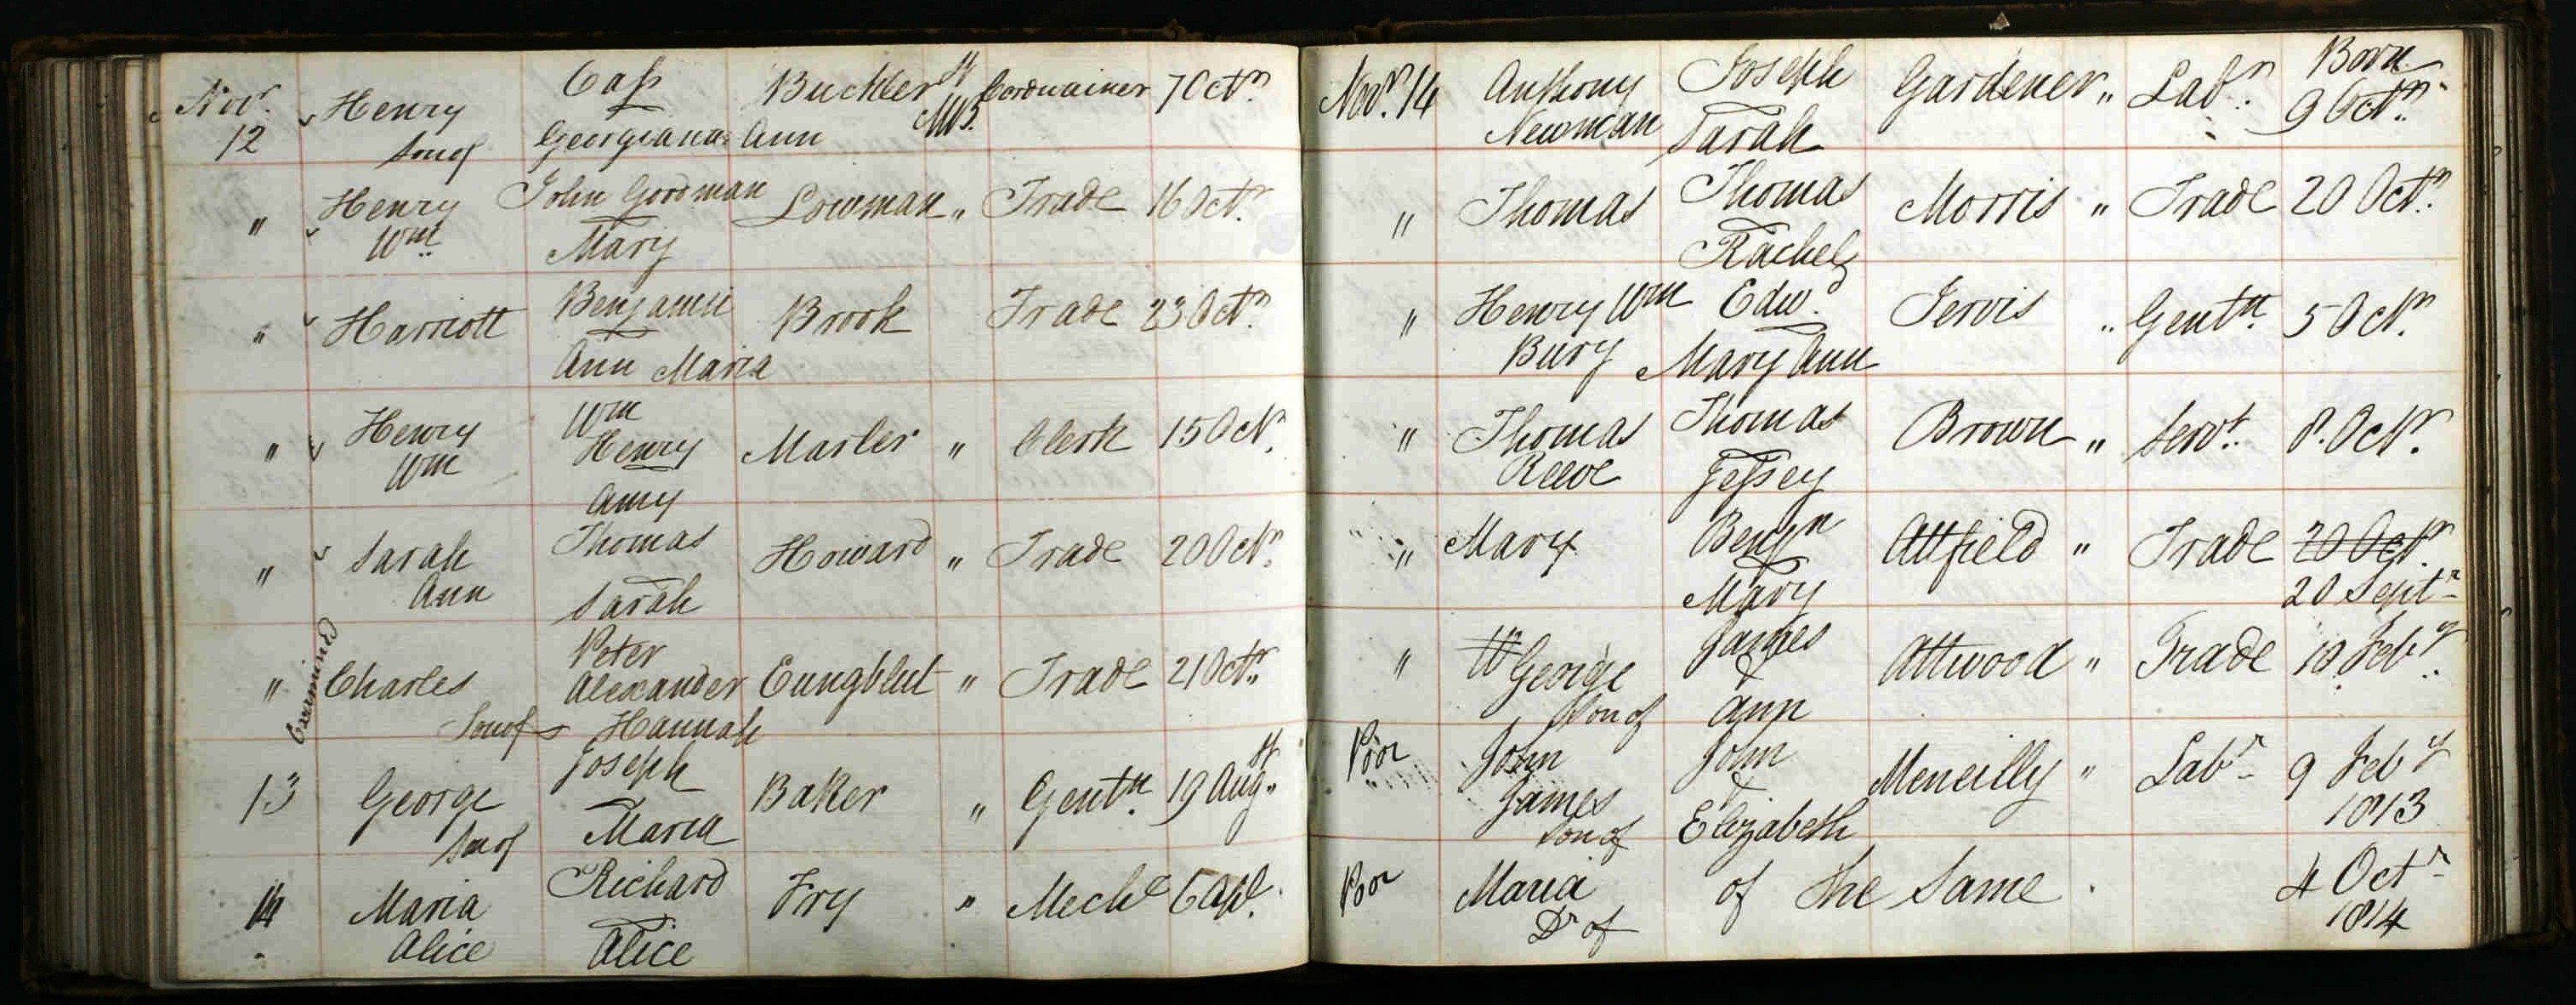 Novr. 12 Henry Cass Buckler St Cordwainer 7 Octr.
son of Georgiana Ann MB.
" Henry John Goodman Lowman " Trade 16 Octr.
Wm Mary
" Harriott Benjamin Brook Trade 23 Octr.
Ann Maria
" Henry Wm Henry Marler " Clerk 15 Octr.
Wm Amy
" Sarah Thomas Howard " Trade 20 Octr.
Ann Sarah
Examined
" Charles Peter Alexander Eungblut " Trade 21 Octr.
Son of Hannah
13 George Joseph Baker " Gentn. 19 Augst
Son of Maria
14 Maria Richard Fry " Mechc 6 Apl.
Alice Alice
Born
Novr. 14 Anthony Joseph Gardener " Labr. 9 Octr.
Newman Sarah
" Thomas Thomas Morris " Trade 20 Octr.
Rachel
" Henry Wm Edwd. Jervis " Gentn. 5 Octr.
Bury Mary Ann
" Thomas Thomas Brown " Servt. 8. Octr.
Reeve Jessey
" Mary Benjn Attfield " Trade 20 Octr.
Mary 20 Septr
" W George James & Attwood " Trade 18 Feby
son of Ann
Poor John John & Meneilly " Labr 9 Feby
James 1813
son of Elizabeth
Poor Maria of the Same. 4 Octr
Dr of 1814